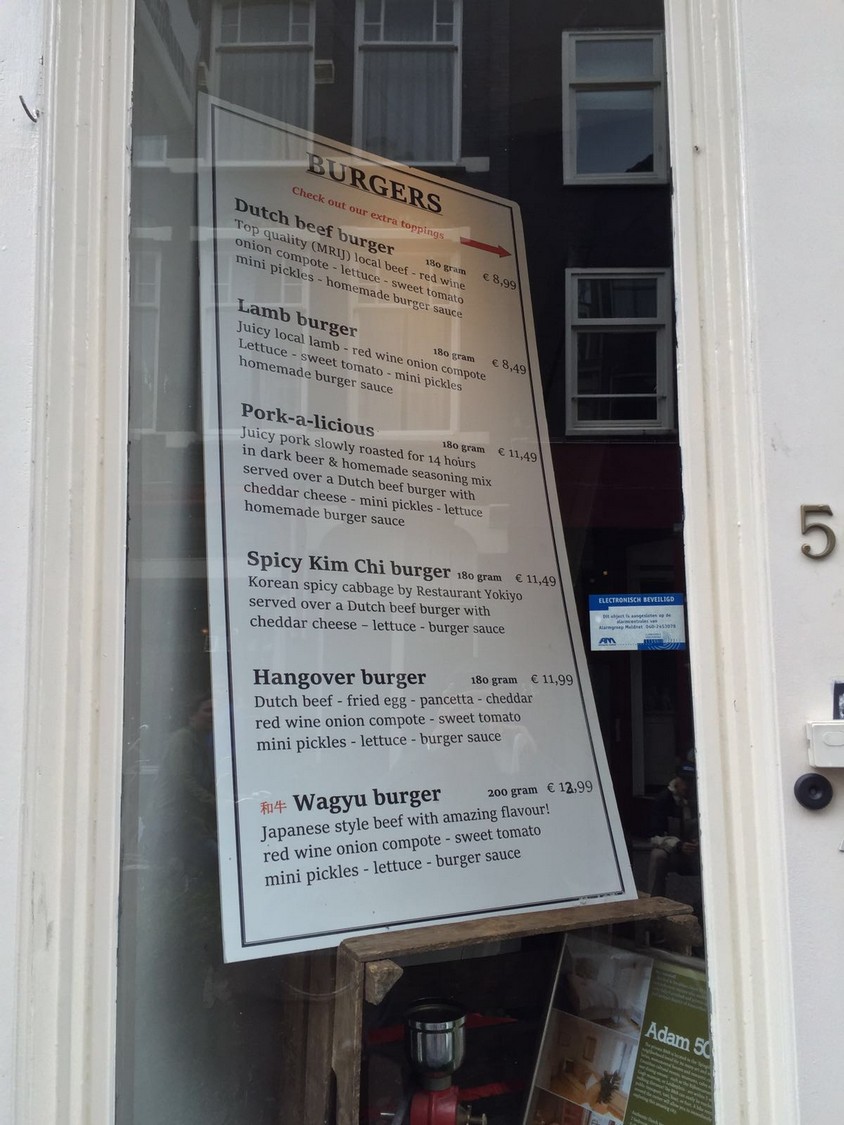 BURGERS
Check out our extra toppings
Dutch beef burger
180 gram € 8,99
Top quality (MRIJ) local beef - red wine
onion compote - lettuce - sweet tomato
mini pickles - homemade burger sauce
Lamb burger
180 gram € 8,49
Juicy local lamb - red wine onion compote
Lettuce - sweet tomato - mini pickles
homemade burger sauce
Pork-a-licious
180 gram € 11,49
Juicy pork slowly roasted for 14 hours
in dark beer & homemade seasoning mix
served over a Dutch beef burger with
cheddar cheese - mini pickles - lettuce
homemade burger sauce
Spicy Kim Chi burger 180 gram € 11,49
Korean spicy cabbage by Restaurant Yokiyo
served over a Dutch beef burger with
cheddar cheese – lettuce - burger sauce
Hangover burger 180 gram € 11,99
Dutch beef - fried egg - pancetta - cheddar
red wine onion compote - sweet tomato
mini pickles - lettuce - burger sauce
和牛 Wagyu burger 200 gram € 12,99
Japanese style beef with amazing flavour!
red wine onion compote - sweet tomato
mini pickles - lettuce - burger sauce
5
ELECTRONISCH BEVEILIGD
Dit object is aangesloten op de
alarmcentrale van
Adam 50